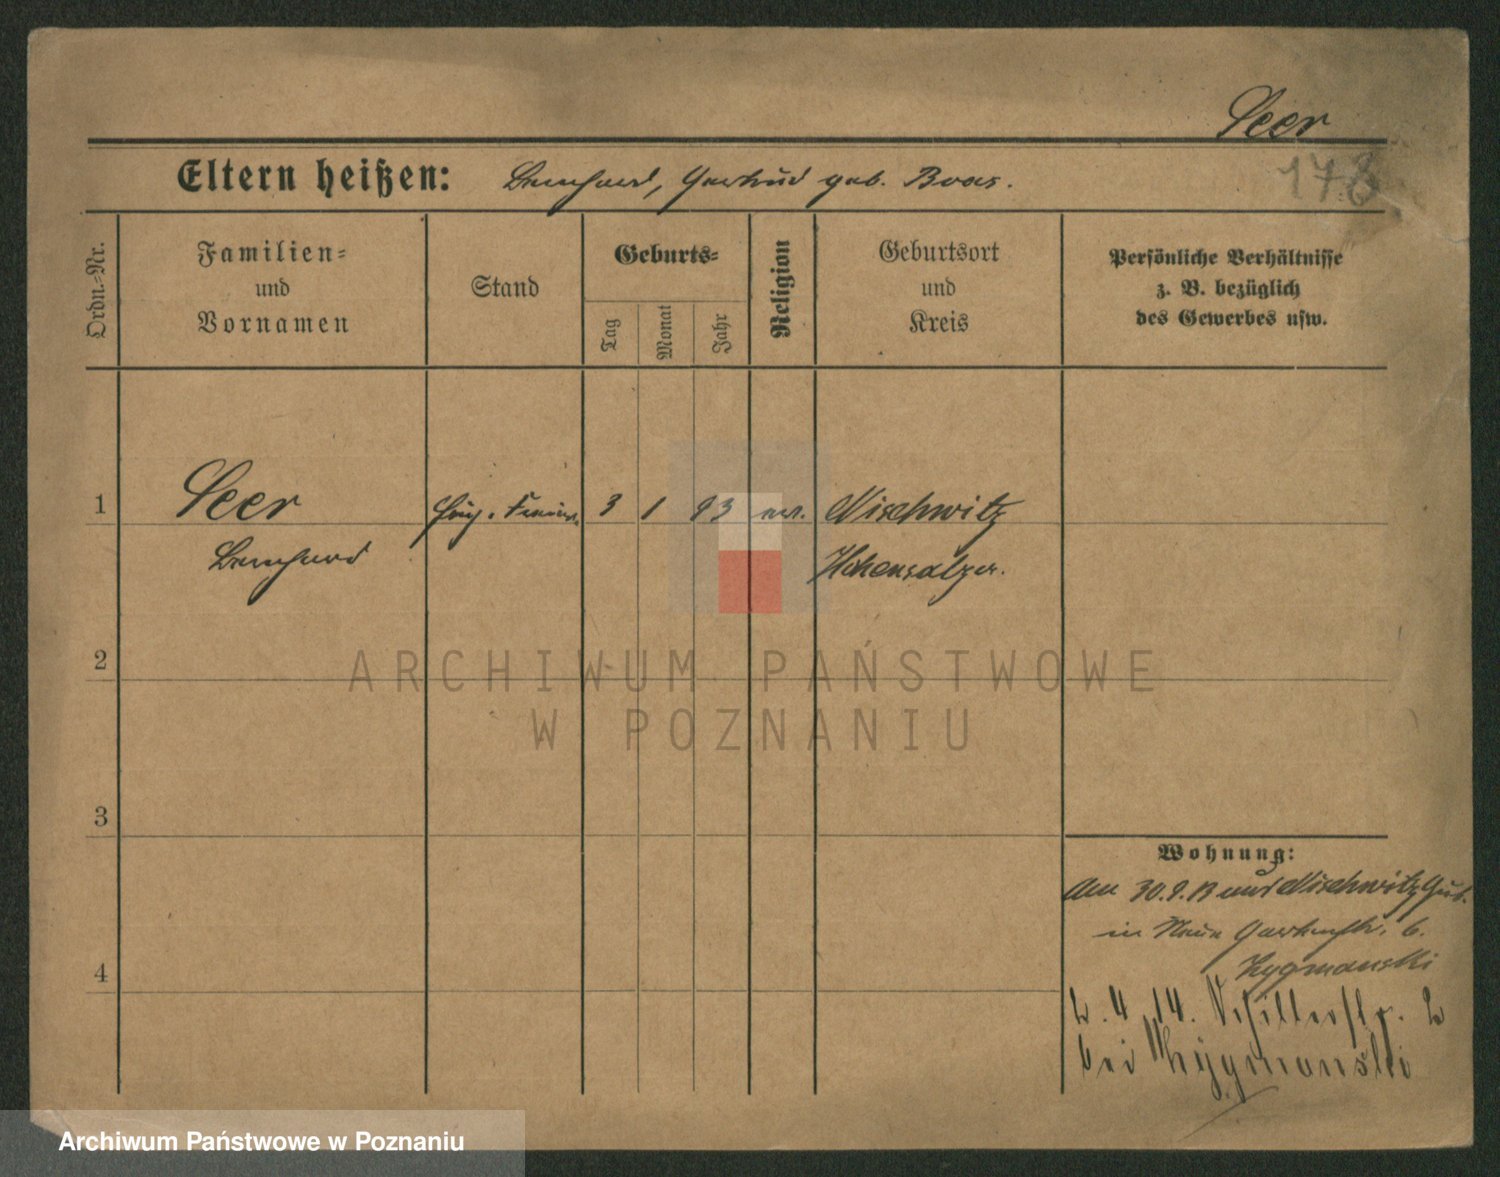 Seer
178
Eltern heißen: Bernhard, Gertrud geb. Boas.
Ordn.-Nr.
Familien-
und
Vornamen
Stand
Geburts-
Tag
Monat
Jahr
Religion
Geburtsort
und
Kreis
Persönliche Verhältnisse
z. B. bezüglich
des Gewerbes usw.
1 Seer 3 1 93 ev. Nischwitz
Bernhard Hohensalza.
2
3
4
Wohnung:
Am 30.9.13 aus Nischwitz Gut.
in Neue Gartenstr. 6.
Zygmanski
2.4.14. Schillerstr. 2
bei Zygmanski
ARCHIWUM PAŃSTWOWE
W POZNANIU
Archiwum Państwowe w Poznaniu